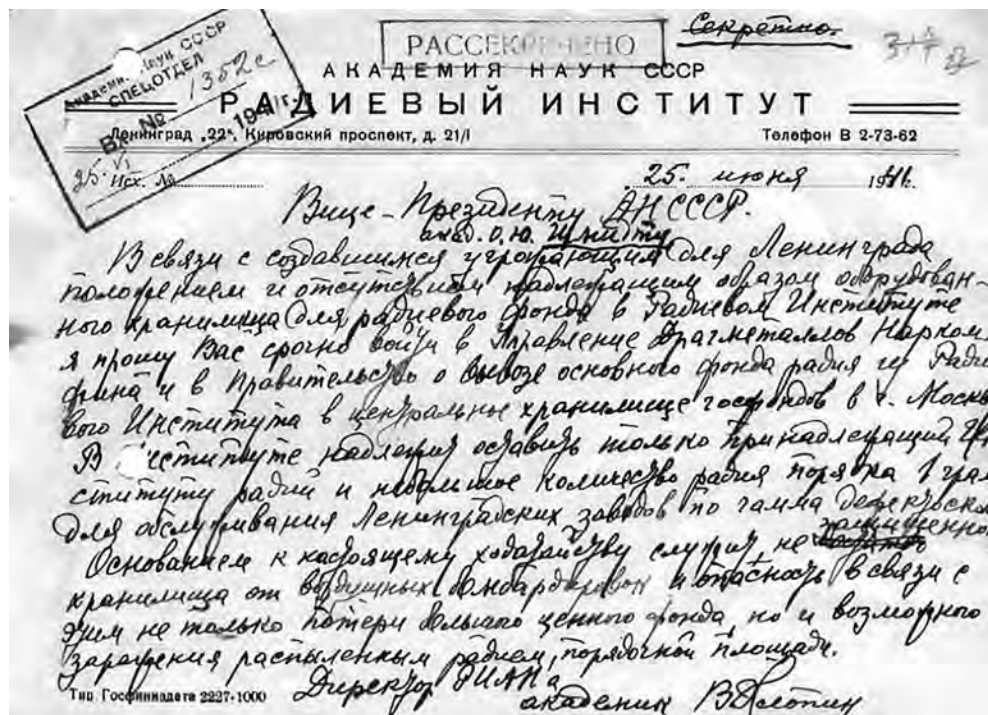 Секретно.
РАССЕКРЕЧЕНО
Академия наук СССР
СПЕЦОТДЕЛ
Вх. № 1352с
25. VI 1941 г.
АКАДЕМИЯ НАУК СССР
РАДИЕВЫЙ ИНСТИТУТ
Ленинград „22“, Кировский проспект, д. 21/I Телефон В 2-73-62
Исх. №
25. июня 1941г.
Вице-Президенту АН СССР.
акад. О.Ю. Шмидту
В связи с создавшимся угрожающим для Ленинграда
положением и отсутствием надлежащим образом оборудован-
ного хранилища для радиевого фонда в Радиевом Институте
я прошу Вас срочно войти в Управление Драгметаллов Нарком-
фина и в Правительство о вывозе основного фонда радия из Радие
вого Института в центральное хранилище госфондов в г. Москв
В Институте надлежит оставить только принадлежащий Ин
ституту радий и небольшое количество радия порядка 1 грам
для обслуживания Ленинградских заводов по гамма дефектоско
Основанием к настоящему ходатайству служит, не защищенно
хранилища от воздушных бомбардировок и опасность в связи с
этим не только потери большого ценного фонда, но и возможного
заражения распыленным радием, порядочной площади.
Директор РИАНа
академик В Хлопин
Тип. Госфиниздата 2227-1000